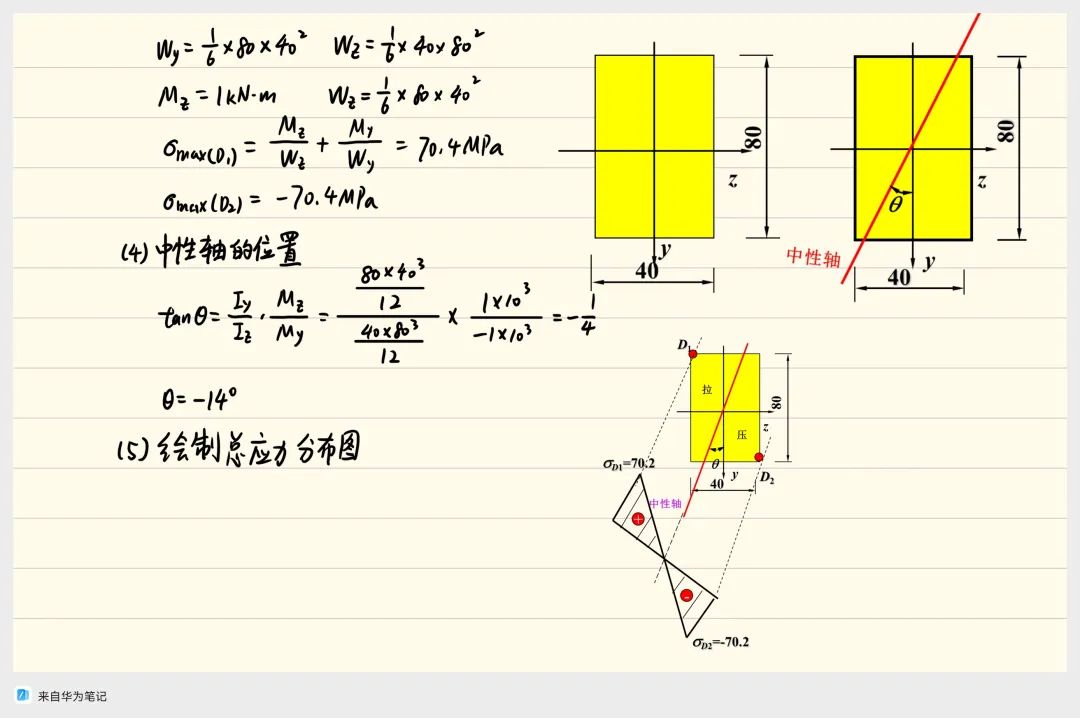 Wy = 1/6 × 80 × 40² Wz = 1/6 × 40 × 80²
Mz = 1kN·m Wz = 1/6 × 80 × 40²
σmax(D₁) = Mz/Wz + My/Wy = 70.4MPa
σmax(D₂) = -70.4MPa
(4) 中性轴的位置
tanθ = Iy/Iz · Mz/My = (80×40³/12)/(40×80³/12) × 1×10³/-1×10³ = -1/4
θ = -14°
(5) 绘制总应力分布图
80
z
y
40
80
z
θ
中性轴
y
40
D₁
拉
80
z
压
θ
y
D₂
40
σD1=70.2
中性轴
+
-
σD2=-70.2
来自华为笔记